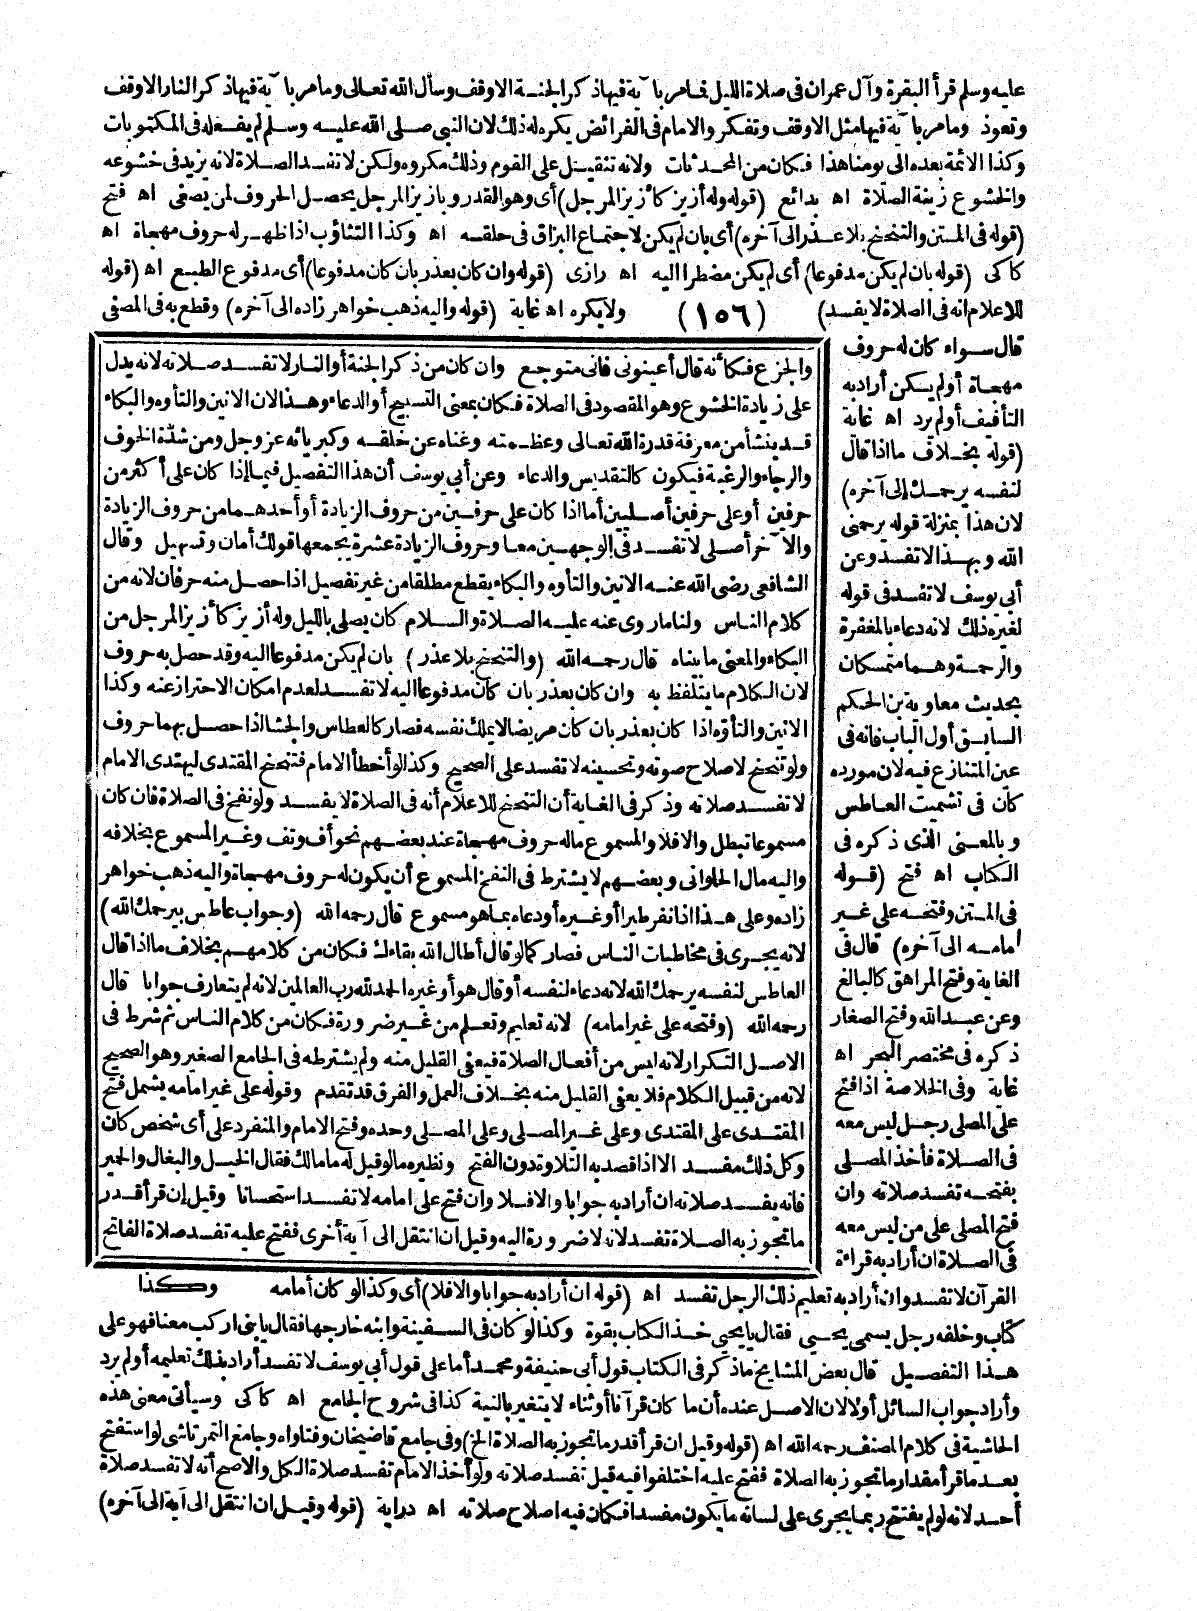 عليه وسلم قرأ البقرة وآل عمران فى صلاة الليل فامر بآية فيها ذكر الجنة الا وقف وسأل الله تعالى وما مر بآية فيها ذكر النار الا وقف
وتعوذ وما مر بآية فيها مثل الا وقف وتفكر والامام فى الفرائض يكره له ذلك لان النبى صلى الله عليه وسلم لم يفعله فى المكتوبات
وكذا الائمة بعده الى يومنا هذا فكان من المحدثات ولانه تثقيل على القوم وذلك مكروه ولكن لا تفسد الصلاة لانه يزيد فى خشوعه
والخشوع زينة الصلاة اه بدائع (قوله وله أزيز كأزيز المرجل) أى وهو القدر وبأزيز المرجل يحصل الحروف لمن يصغى اه فتح
(قوله فى المتن والتنحنح بلا عذر الى آخره) أى بان لم يكن لاجتماع البزاق فى حلقه اه وكذا التثاؤب اذا ظهر له حروف مهجاة اه
كاكى (قوله بان لم يكن مدفوعا) أى لم يكن مضطرا اليه اه رازى (قوله وان كان بعذر بان كان مدفوعا) أى مدفوع الطبع اه (قوله
للاعلام انه فى الصلاة لا يفسد) (١٥٦) ولا يكره اه غاية (قوله واليه ذهب خواهر زاده الى آخره) وقطع به فى المصفى
قال سواء كان له حروف
مهجاة أولم يكن أراد به
التأفيف أولم يرد اه غاية
(قوله بخلاف ما اذا قال
لنفسه يرحمك الى آخره)
لان هذا بمنزلة قوله يرحمنى
الله وبهذا لا تفسد وعن
أبى يوسف لا تفسد فى قوله
لغيره ذلك لانه دعاء بالمغفرة
والرحمة وهما متمسكان
بحديث معاوية بن الحكم
السابق أول الباب فانه فى
عين المتنازع فيه لان مورده
كان فى تشميت العاطس
وبالمعنى الذى ذكره فى
الكتاب اه فتح (قوله
فى المتن وفتحه على غير
امامه الى آخره) قال فى
الغاية وفتح المراهق كالبالغ
وعن عبد الله وفتح الصغار
ذكره فى مختصر البحر اه
غاية وفى الخلاصة اذا فتح
على المصلى رجل ليس معه
فى الصلاة فأخذ المصلى
بفتحه تفسد صلاته وان
فتح المصلى على من ليس معه
فى الصلاة ان أراد به قراءة
والجزع فكأنه قال أعينونى فانى متوجع وان كان من ذكر الجنة أو النار لا تفسد صلاته لانه يدل
على زيادة الخشوع وهو المقصود فى الصلاة فكان بمعنى التسبيح أو الدعاء وهذا لان الانين والتأوه والبكاء
قد ينشأ من معرفة قدرة الله تعالى وعظمته وغناه عن خلقه وكبريائه عز وجل ومن شدة الخوف
والرجاء والرغبة فيكون كالتقديس والدعاء وعن أبى يوسف أن هذا التفصيل فيما إذا كان على أكثر من
حرفين أو على حرفين أصليين أما اذا كان على حرفين من حروف الزيادة أو أحدهما من حروف الزيادة
والآخر أصلى لا تفسد فى الوجهين معا وحروف الزيادة عشرة يجمعها قولك أمان وتسهيل وقال
الشافعى رضى الله عنه الانين والتأوه والبكاء يقطع مطلقا من غير تفصيل اذا حصل منه حرفان لانه من
كلام الناس ولنا ما روى عنه عليه الصلاة والسلام كان يصلى بالليل وله أزيز كأزيز المرجل من
البكاء والمعنى ما بيناه قال رحمه الله (والتنحنح بلا عذر) بان لم يكن مدفوعا اليه وقد حصل به حروف
لان الكلام ما يتلفظ به وان كان بعذر بان كان مدفوعا اليه لا تفسد لعدم امكان الاحتراز عنه وكذا
الانين والتأوه اذا كان بعذر بان كان مريضا لا يملك نفسه فصار كالعطاس والجشا اذا حصل بهما حروف
ولو تنحنح لاصلاح صوته وتحسينه لا تفسد على الصحيح وكذا لو أخطأ الامام فتنحنح المقتدى ليهتدى الامام
لا تفسد صلاته وذكر فى الغاية أن التنحنح للاعلام أنه فى الصلاة لا يفسد ولو نفخ فى الصلاة فان كان
مسموعا تبطل والا فلا والمسموع ماله حروف مهجاة عند بعضهم نحو أف وتف وغير المسموع بخلافه
واليه مال الحلوانى وبعضهم لا يشترط فى النفخ المسموع أن يكون له حروف مهجاة واليه ذهب خواهر
زاده وعلى هذا اذا نفر طيرا أو غيره أو دعاه بما هو مسموع قال رحمه الله (وجواب عاطس بيرحمك الله)
لانه يجرى فى مخاطبات الناس فصار كما لو قال أطال الله بقاءك فكان من كلامهم بخلاف ما اذا قال
العاطس لنفسه يرحمك الله لانه دعاء لنفسه أو قال هو أو غيره الحمد لله رب العالمين لانه لم يتعارف جوابا قال
رحمه الله (وفتحه على غير امامه) لانه تعليم وتعلم من غير ضرورة فكان من كلام الناس ثم شرط فى
الاصل التكرار لانه ليس من أفعال الصلاة فيعفى القليل منه ولم يشترطه فى الجامع الصغير وهو الصحيح
لانه من قبيل الكلام فلا يعفى القليل منه بخلاف العمل والفرق قد تقدم وقوله على غير امامه يشمل فتح
المقتدى على المقتدى وعلى غير المصلى وعلى المصلى وحده وفتح الامام والمنفرد على أى شخص كان
وكل ذلك مفسد الا اذا قصد به التلاوة دون الفتح ونظيره ما لو قيل له ما مالك فقال الخيل والبغال والحمير
فانه يفسد صلاته ان أراد به جوابا والا فلا وان فتح على امامه لا تفسد استحسانا وقيل إن قرأ قدر
ما تجوز به الصلاة تفسد لانه لا ضرورة اليه وقيل ان انتقل الى آية أخرى ففتح عليه تفسد صلاة الفاتح
القرآن لا تفسد وان أراد به تعليم ذلك الرجل تفسد اه (قوله ان أراد به جوابا والا فلا) أى وكذا لو كان أمامه وكذا
كتاب وخلفه رجل يسمى يحيى فقال يا يحيى خذ الكتاب بقوة وكذا لو كان فى السفينة وابنه خارجها فقال يا بنى اركب معنا فهو على
هذا التفصيل قال بعض المشايخ ما ذكر فى الكتاب قول أبى حنيفة ومحمد أما على قول أبى يوسف لا تفسد أراد بذلك تعليمه أولم يرد
وأراد جواب السائل أولا لان الاصل عنده أن ما كان قرآنا أو ثناء لا يتغير بالنية كذا فى شروح الجامع اه كاكى وسيأتى معنى هذه
الحاشية فى كلام المصنف رحمه الله اه (قوله وقيل ان قرأ قدر ما تجوز به الصلاة الخ) وفى جامع قاضيخان وفتاواه وجامع التمرتاشى لو استفتح
بعد ما قرأ مقدار ما تجوز به الصلاة ففتح عليه اختلفوا فيه قيل تفسد صلاته ولو أخذ الامام تفسد صلاة الكل والاصح أنه لا تفسد صلاة
أحد لانه لو لم يفتح ربما يجرى على لسانه ما يكون مفسدا فكان فيه اصلاح صلاته اه دراية (قوله وقيل ان انتقل الى آية الى آخره)